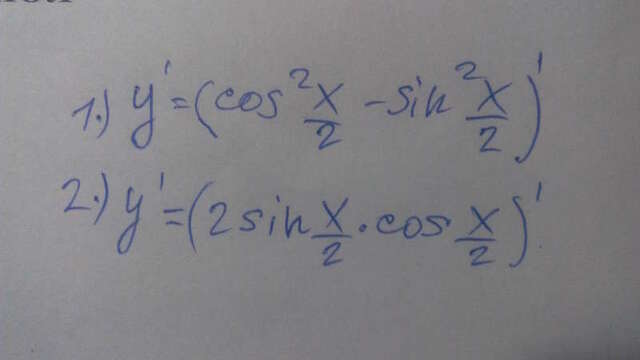 1.) y' = (cos² x/2 - sin² x/2)'
2.) y' = (2 sin x/2 · cos x/2)'